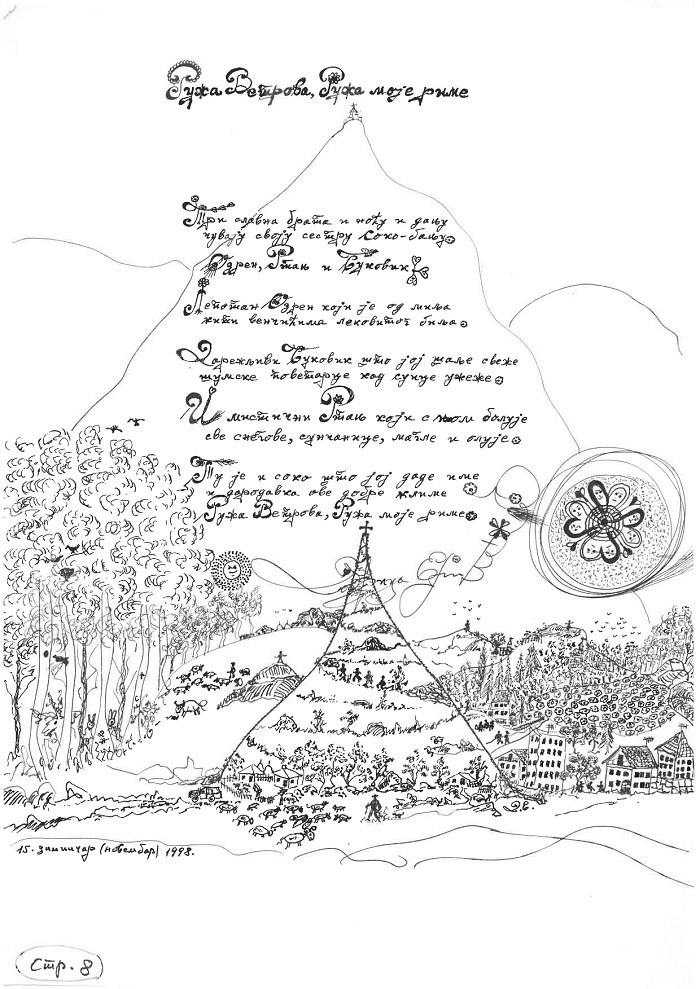 Ружа Ветрова, Ружа моје риме
Три славна брата и ноћу и дању
чувају своју сестру Соко-бању
Одрен, Ртањ и Буковик
Лепотан Одрен који је од миља
кити венчићима лековитог биља
Дарежљиви Буковик што јој шаље свеже
шумске поветарце кад сунце ужеже
И мистични Ртањ који с њом болује
све снегове, сунчанице, магле и олује
Ту је и соко што јој даде име
и дародавка ове добре климе
Ружа Ветрова, Ружа моје риме
15. зимичар (новембар) 1998.
Стр. 8